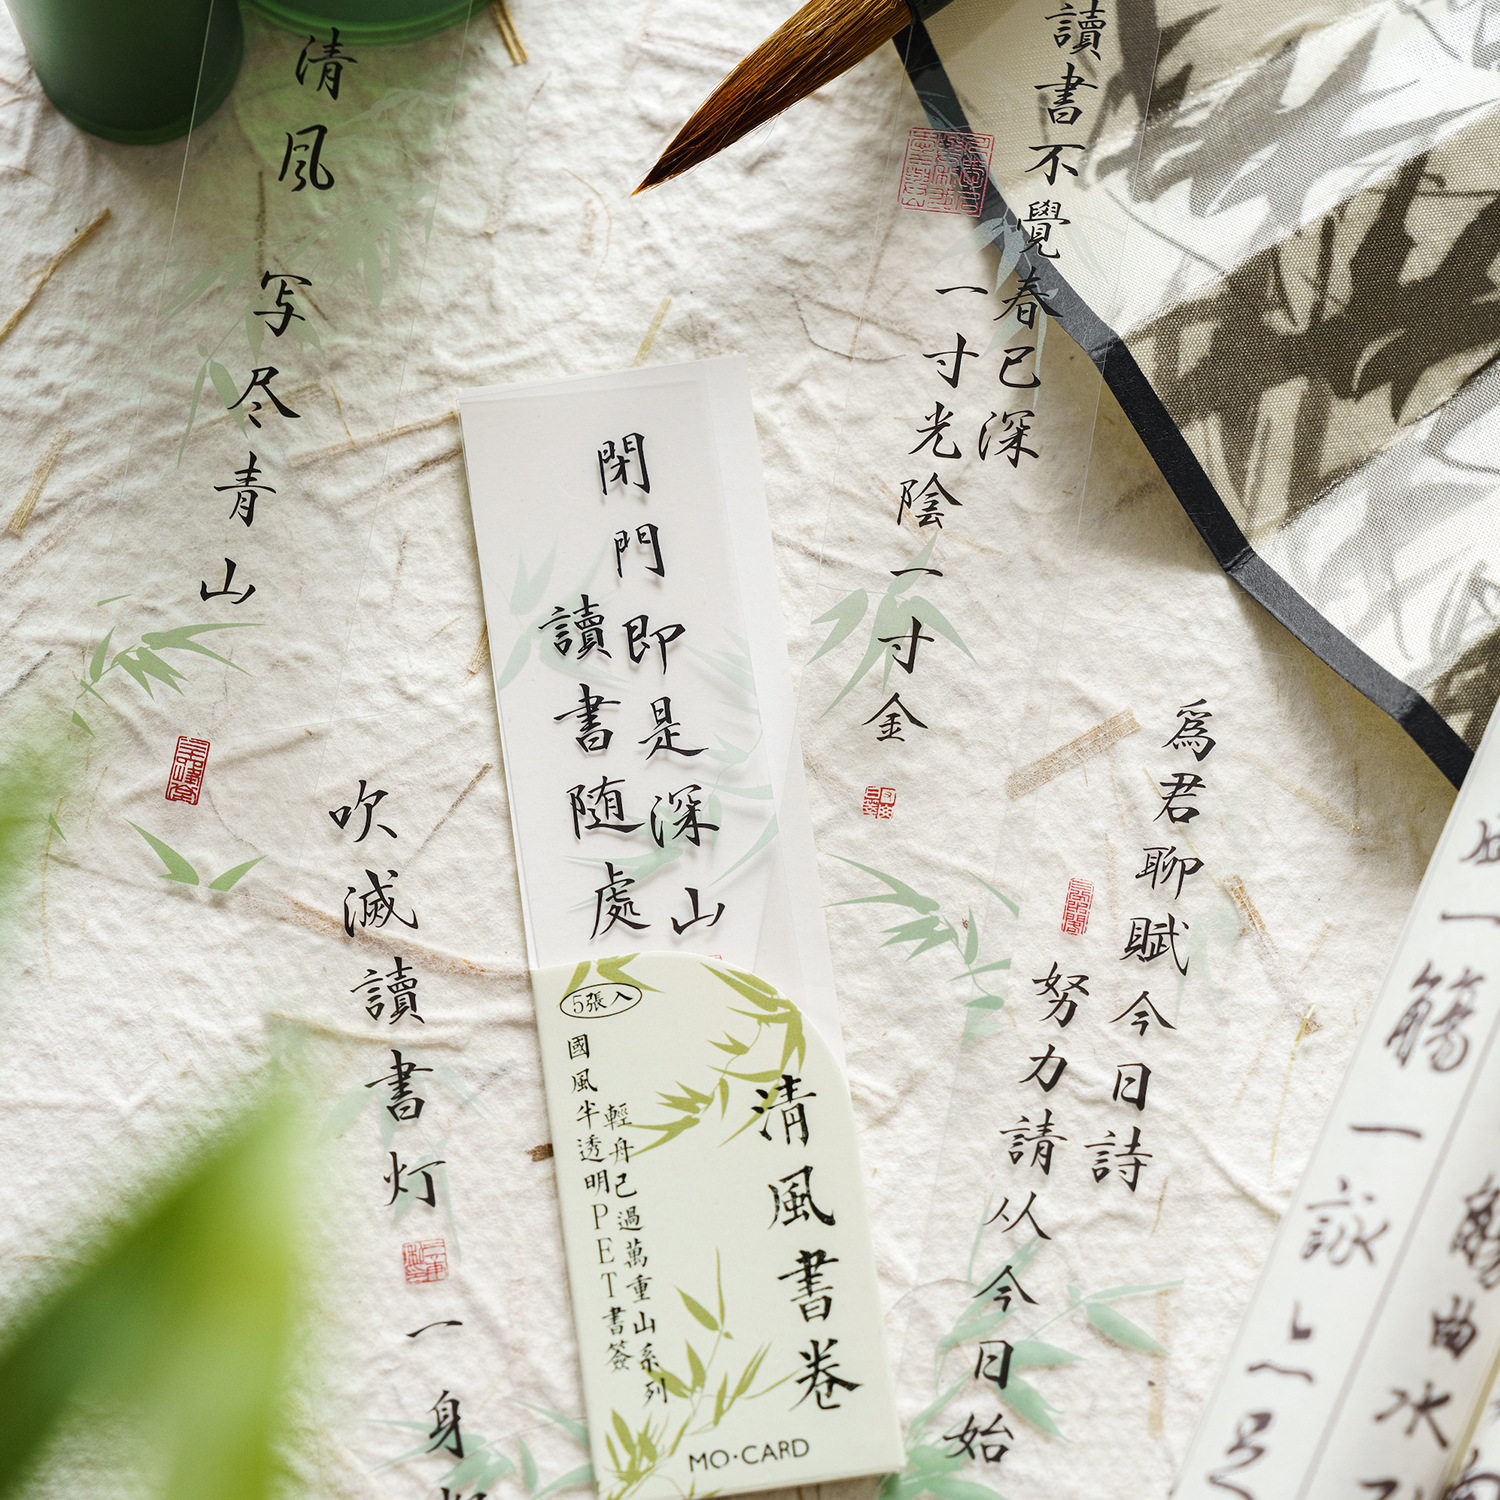 清風
写尽青山
吹滅讀書灯
一身
閉門即是深山
讀書随處
5張入
清風書卷
輕舟已過萬重山系列
國風半透明PET書簽
MO·CARD
讀書不覺春已深
一寸光陰一寸金
為君聊賦今日詩
努力請从今日始
一觴一詠
曲水